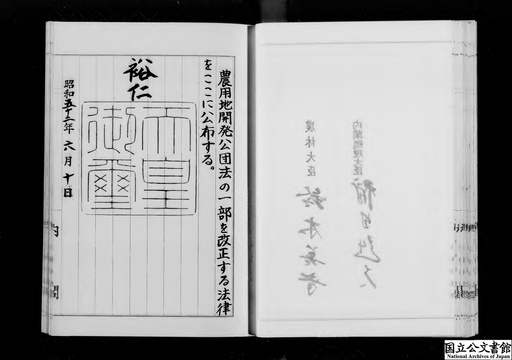 内閣総理大臣
福田赳夫
農林大臣
鈴木善幸
農用地開発公団法の一部を改正する法律
をここに公布する。
裕仁
天皇御璽
昭和五十二年六月十日
内閣
国立公文書館
National Archives of Japan